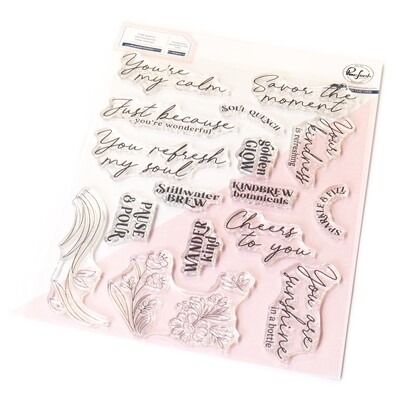 You're
my calm
Savor the
moment
Just because
you're wonderful
SOUL QUENCH
Your
kindness
is refreshing
golden
GLOW
You refresh
my soul
Stillwater
BREW
KINDBREW
botanicals
SPARKLE & FIZZ
PAUSE
& POUR
WANDER
kind
Cheers
to you
You are
sunshine
in a bottle